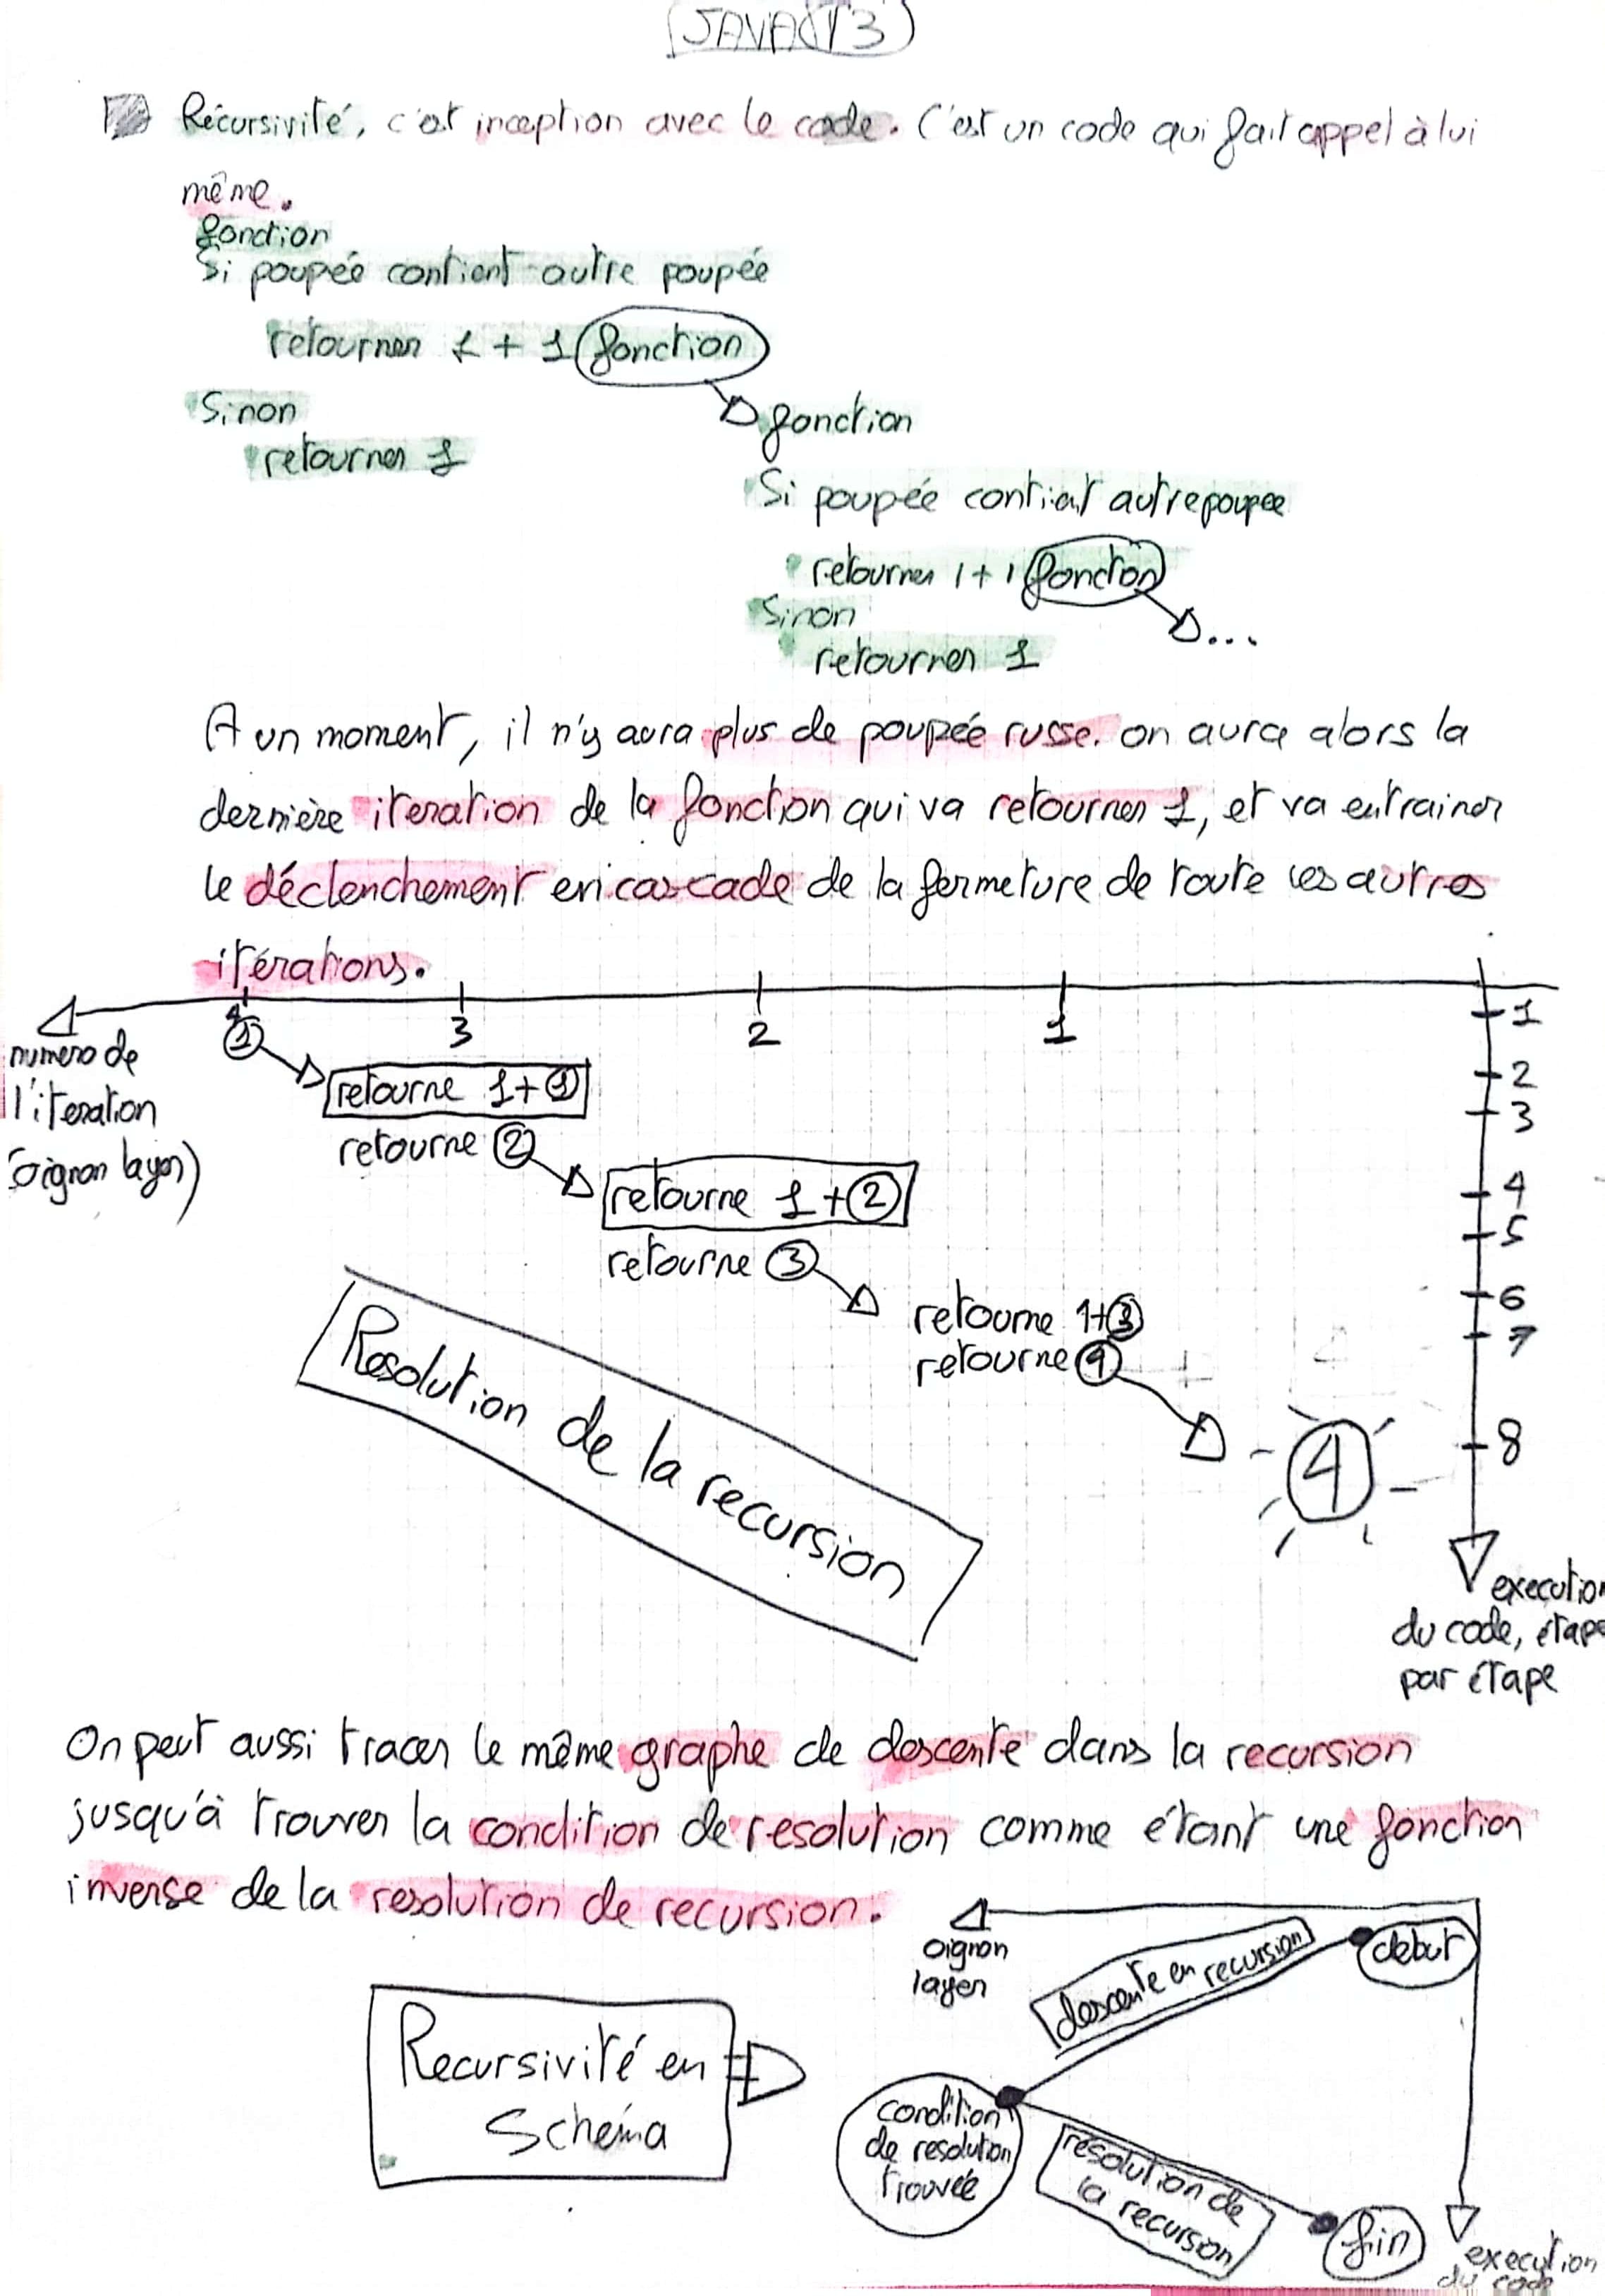 JAVA
Récursivité, c'est inception avec le code. C'est un code qui fait appel à lui
même.
fonction
Si poupée contient autre poupée
retourner 1 + 1 fonction
Sinon
retourner 1
fonction
Si poupée contient autre poupee
retourner 1 + 1 fonction
Sinon
retourner 1
...
A un moment, il n'y aura plus de poupée russe. on aura alors la
dernière iteration de la fonction qui va retourner 1, et va entrainer
le déclenchement en cascade de la fermeture de toute les autres
itérations.
4 3 2 1
1
numero de
l'iteration
(oignon layer)
retourne 1+1
retourne 2
retourne 1+2
retourne 3
retourne 1+3
retourne 4
4
1
2
3
4
5
6
7
8
execution
du code, étape
par étape
Resolution de la recursion
On peut aussi tracer le même graphe de descente dans la recursion
jusqu'à trouver la condition de resolution comme étant une fonction
inverse de la resolution de recursion.
oignon
layer
descente en recursion
debut
Recursivité en
Schéma
condition
de resolution
trouvée
résolution de
la recursion
fin
execution
du code